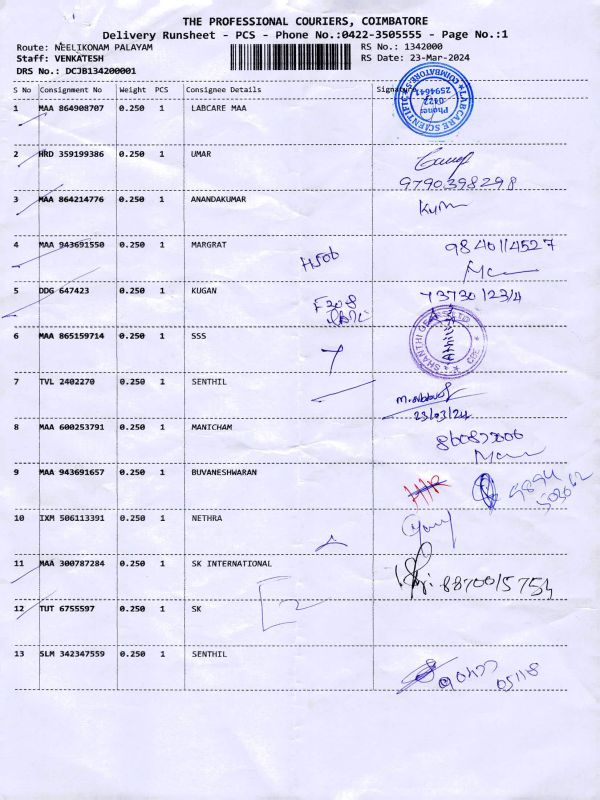 THE PROFESSIONAL COURIERS, COIMBATORE
Delivery Runsheet - PCS - Phone No.:0422-3505555 - Page No.:1
Route: NEELIKONAM PALAYAM RS No.: 1342000
Staff: VENKATESH RS Date: 23-Mar-2024
DRS No.: DCJB134200001
S No Consignment No Weight PCS Consignee Details Signature
1 MAA 864908707 0.250 1 LABCARE MAA
LABCARE SCIENTIFIC COIMBATORE
Phone: 0422 2594641
2 HRD 359199386 0.250 1 UMAR
9790398298
3 MAA 864214776 0.250 1 ANANDAKUMAR
4 MAA 943691550 0.250 1 MARGRAT 9840114527
5 DDG 647423 0.250 1 KUGAN F308 73730 123/4
6 MAA 865159714 0.250 1 SSS
7 TVL 2402270 0.250 1 SENTHIL
23/03/24
8 MAA 600253791 0.250 1 MANICHAM
9 MAA 943691657 0.250 1 BUVANESHWARAN
10 IXM 506113391 0.250 1 NETHRA
11 MAA 300787284 0.250 1 SK INTERNATIONAL 8870015754
12 TUT 6755597 0.250 1 SK
13 SLM 342347559 0.250 1 SENTHIL